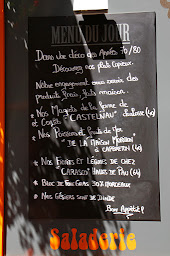 MENU DU JOUR
Dans une déco des Années 70/80
Découvrez nos plats copieux.
Notre engagement vous servir des
produits frais, faits maison.
* Nos Magrets de la ferme de
et Confits "CASTELNAU" (40)
* Nos Poissons et fruits de Mer
DE "LA MAISON
à CAPBRETON (40)
* Nos FRUITS ET LÉGUMES DE CHEZ
CARASSUS HAUT DE PAU (64)
* BLOC DE FOIE GRAS 30% MORCEAUX
* NOS GÉSIERS SONT DE DINDE
Bon Appétit !
Saladerie